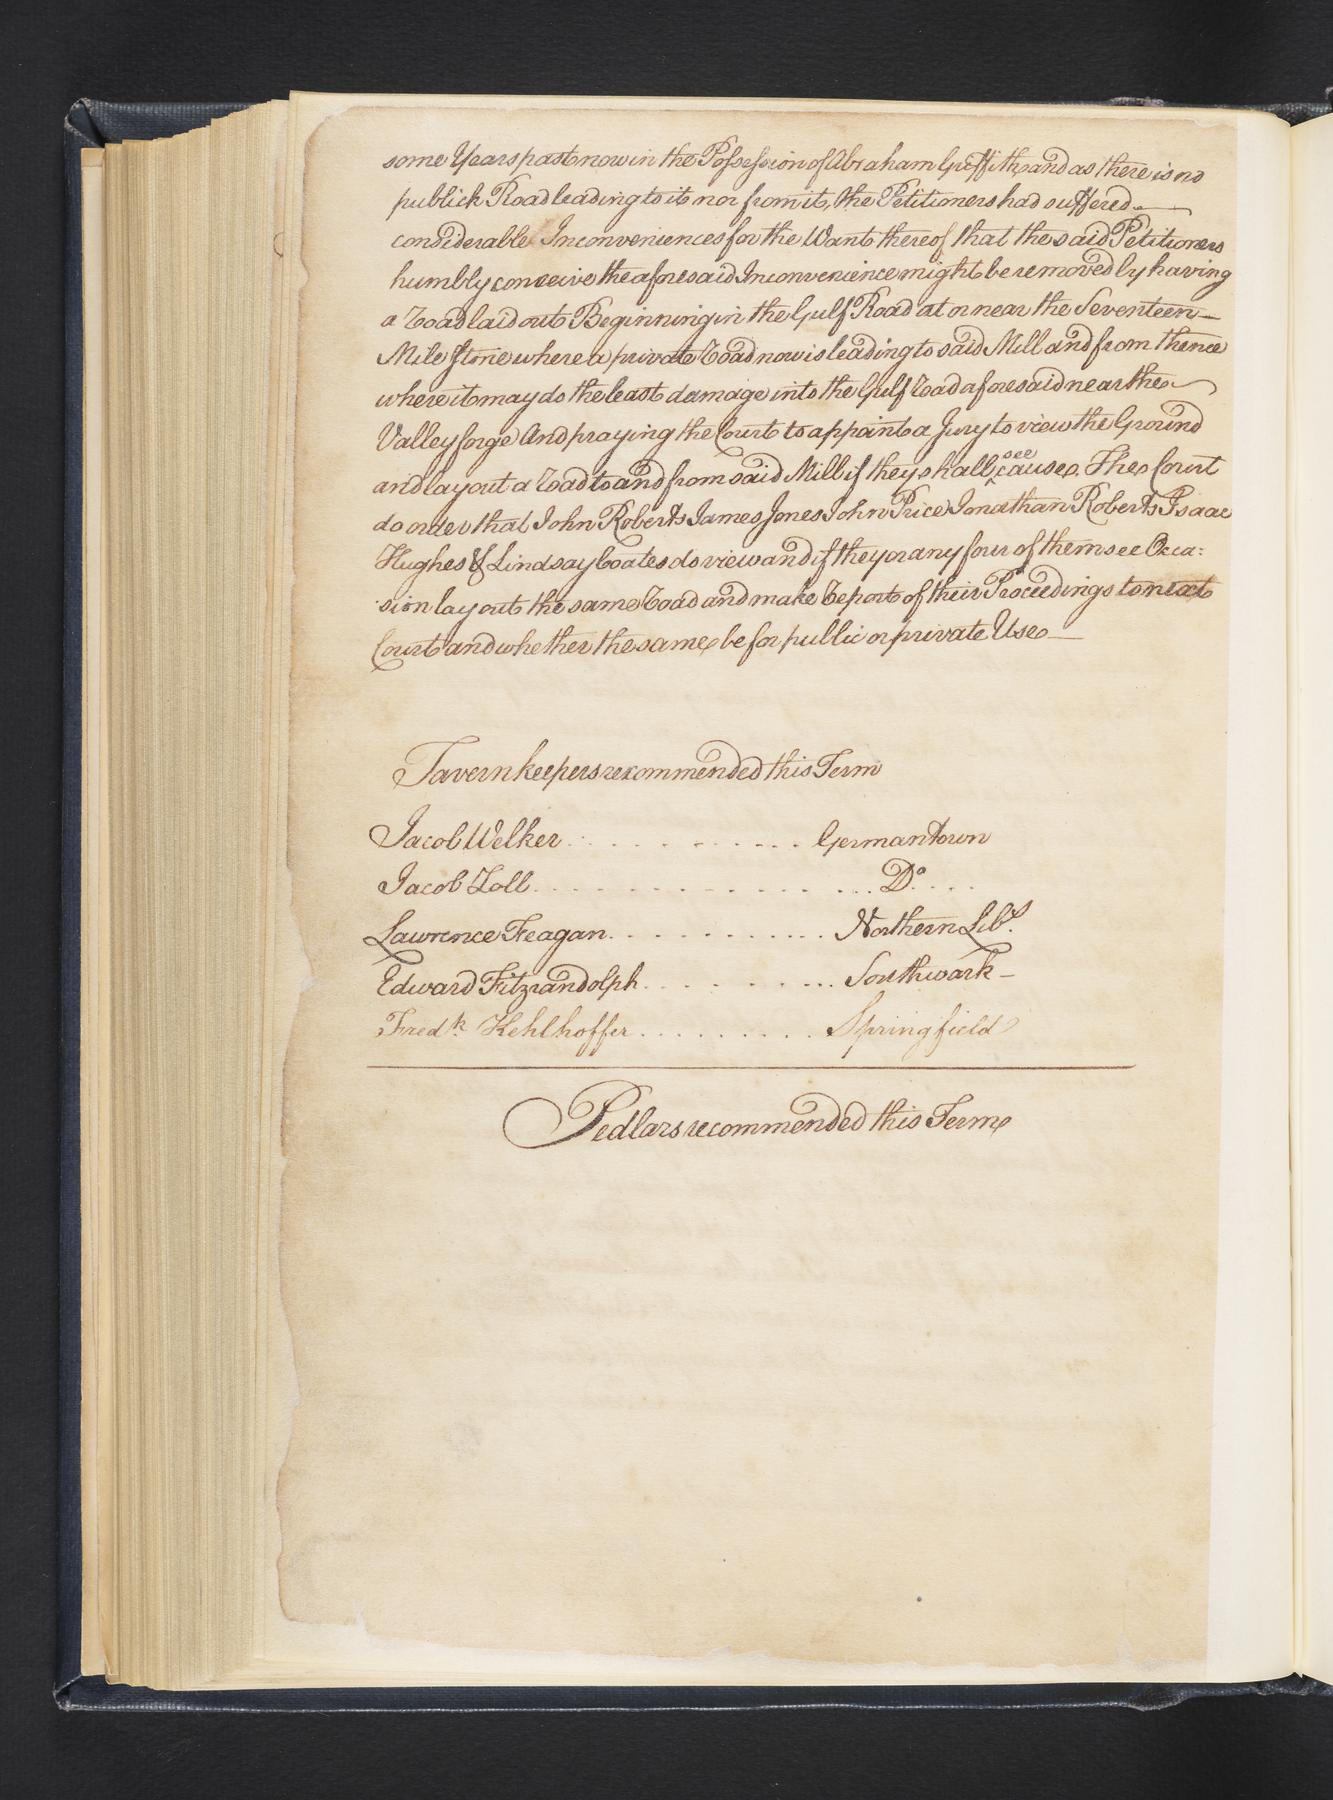 some Years past now in the Possession of Abraham Griffith and as there is no
publick Road leading to it nor from it, the Petitioners had suffered
considerable Inconveniences for the Want thereof that the said Petitioners
humbly conceive the aforesaid Inconvenience might be removed by having
a Road laid out Beginning in the Gulf Road at or near the Seventeen
Mile Stone where a private Road now is leading to said Mill and from thence
where it may do the least damage into the Gulf Road aforesaid near the
Valley forge And praying the Court to appoint a Jury to view the Ground
and lay out a Road to and from said Mill if they shall see cause. The Court
do order that John Roberts James Jones John Price Jonathan Roberts Isaac
Hughes & Lindsay Coates do view and if they or any four of them see Occa:
sion lay out the same Road and make Report of their Proceedings to next
Court and whether the same be for public or private Use
Tavernkeepers recommended this Term
Jacob Welker . . . . . . . . . . . Germantown
Jacob Zoll . . . . . . . . . . . . . . . Do. . . .
Lawrence Feagan . . . . . . . . . . . Northern Libs.
Edward Fitzrandolph . . . . . . . . . Southwark
Fredk. Kehlhoffer . . . . . . . . . Springfield
Pedlars recommended this Term